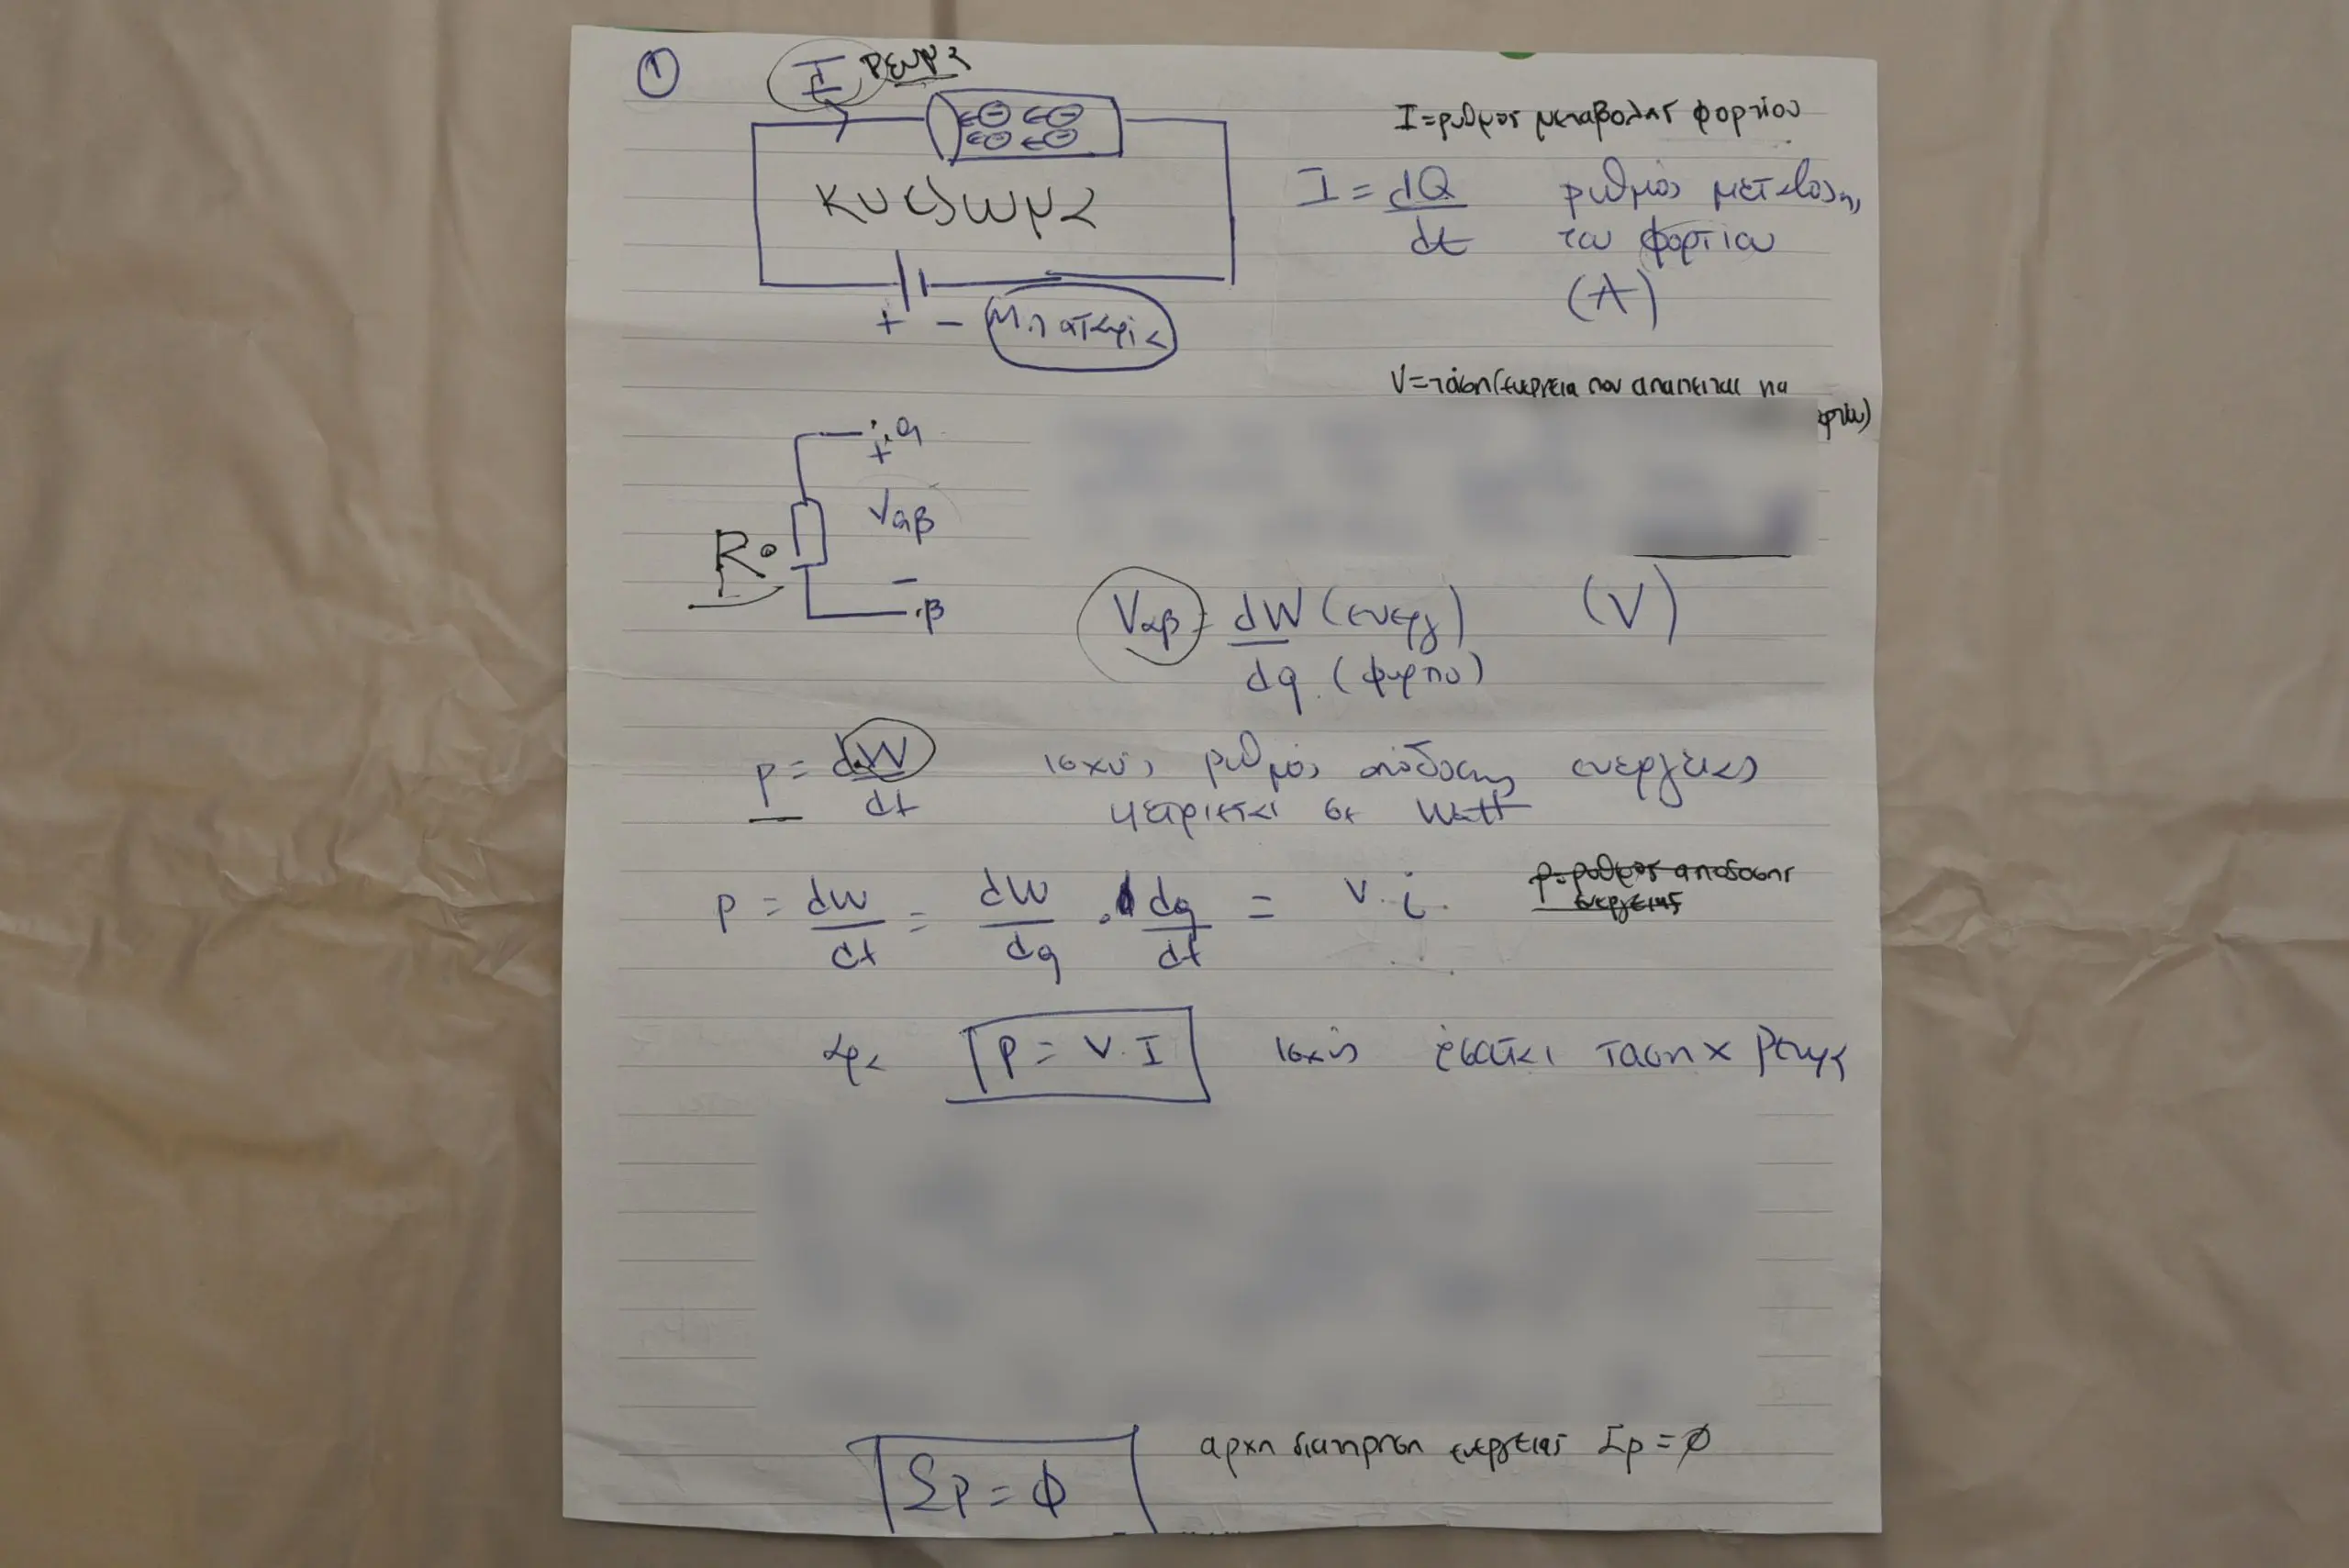 ①
I ρευμα
I = ρυθμος μεταβολης φορτιου
⊖ ⊖
⊖ ⊖
κυκλωμα
I = dQ/dt ρυθμός μεταβολης
του φορτίου
(A)
+ − Μπαταρία
V = τάση (ενεργεια που απαιτειται να
+ α
Vαβ
R
−
β
Vαβ = dW (ενεργ) / dq (φορτιο) (V)
p = dW/dt ισχύς ρυθμός απόδοσης ενεργείας
μετριεται σε Watt
p = dw/dt = dw/dq · dq/dt = v·i
p = ρυθμος αποδοσης
ενεργειας
αρα p = V·I ισχύς ισούται ταση x ρευμα
Σp = φ
αρχη διατηρηση ενεργειας Σp = φ